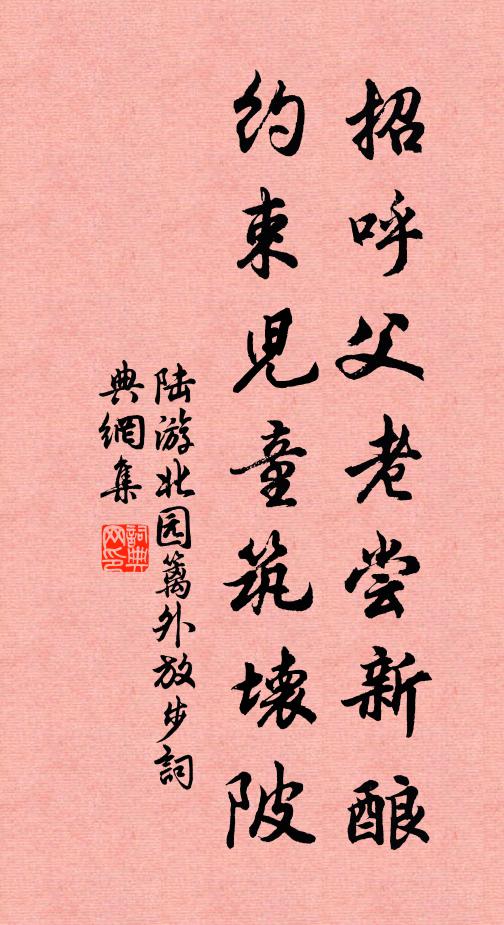 招呼父老尝新酿
约束児童筑壊陂
陆游北园篱外放步詞
典網集
詞典网印